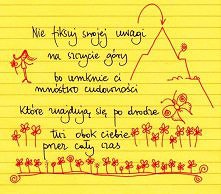 Nie fiksuj swojej uwagi
na szczycie góry
bo umknie ci
mnóstwo cudowności
które znajdują się po drodze
tuż obok ciebie
przez cały czas